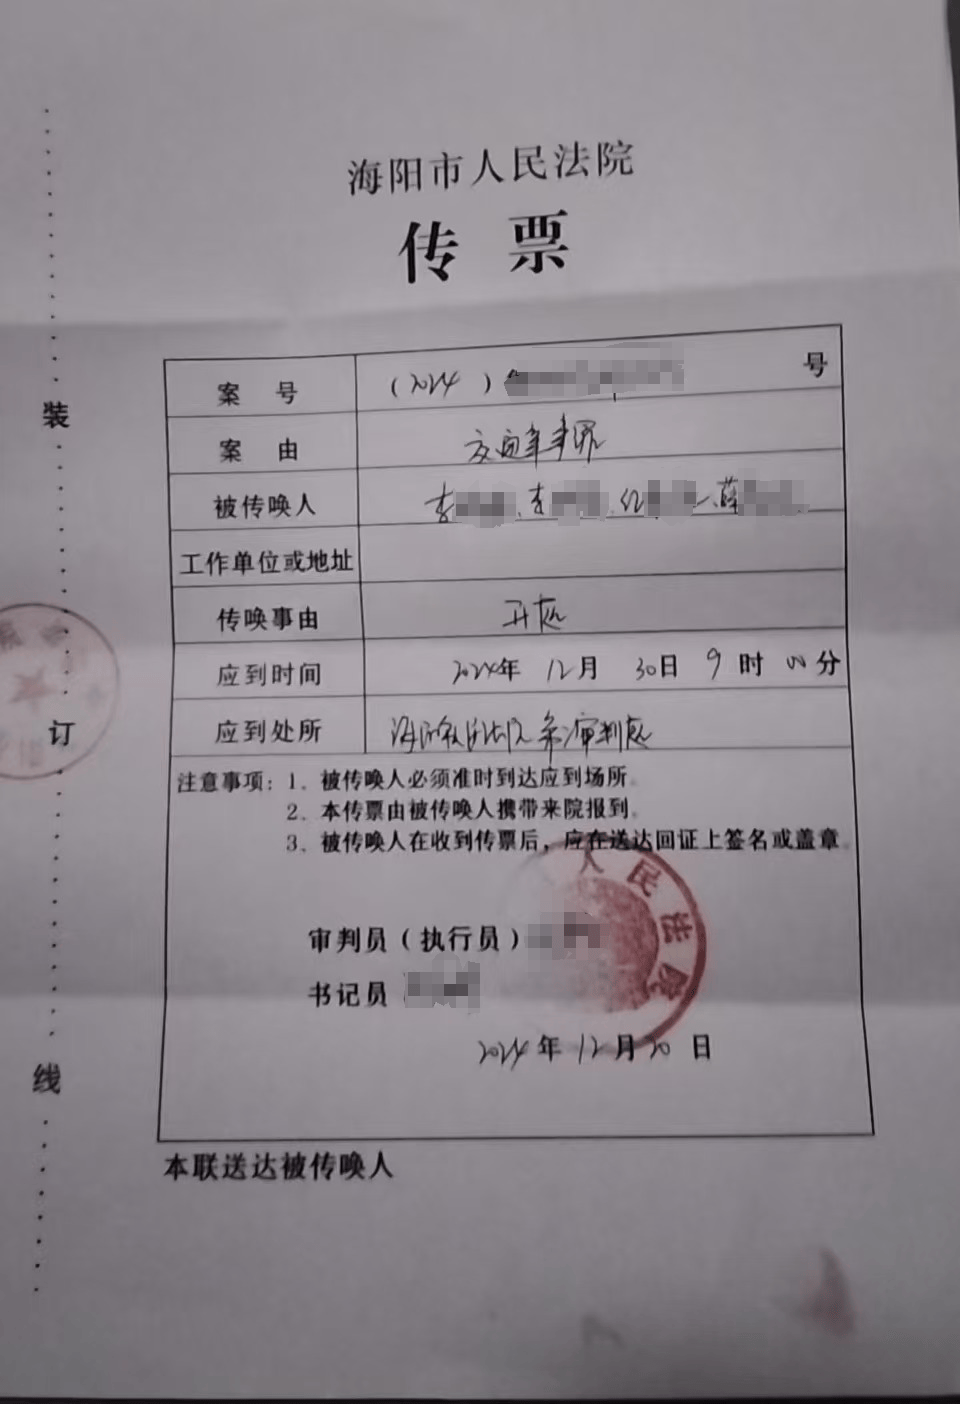 海阳市人民法院
传 票
案 号 (2024) 号
案 由 交通肇事罪
被传唤人 李 、李 、 、薛
工作单位或地址
传唤事由 开庭
应到时间 2024年 12月 30日 9 时 00分
应到处所 海阳 法院 审判庭
注意事项：1、被传唤人必须准时到达应到场所。
2、本传票由被传唤人携带来院报到。
3、被传唤人在收到传票后，应在送达回证上签名或盖章。
审判员（执行员）
书记员
人民法院
2024 年 12 月 20 日
本联送达被传唤人
装
订
线